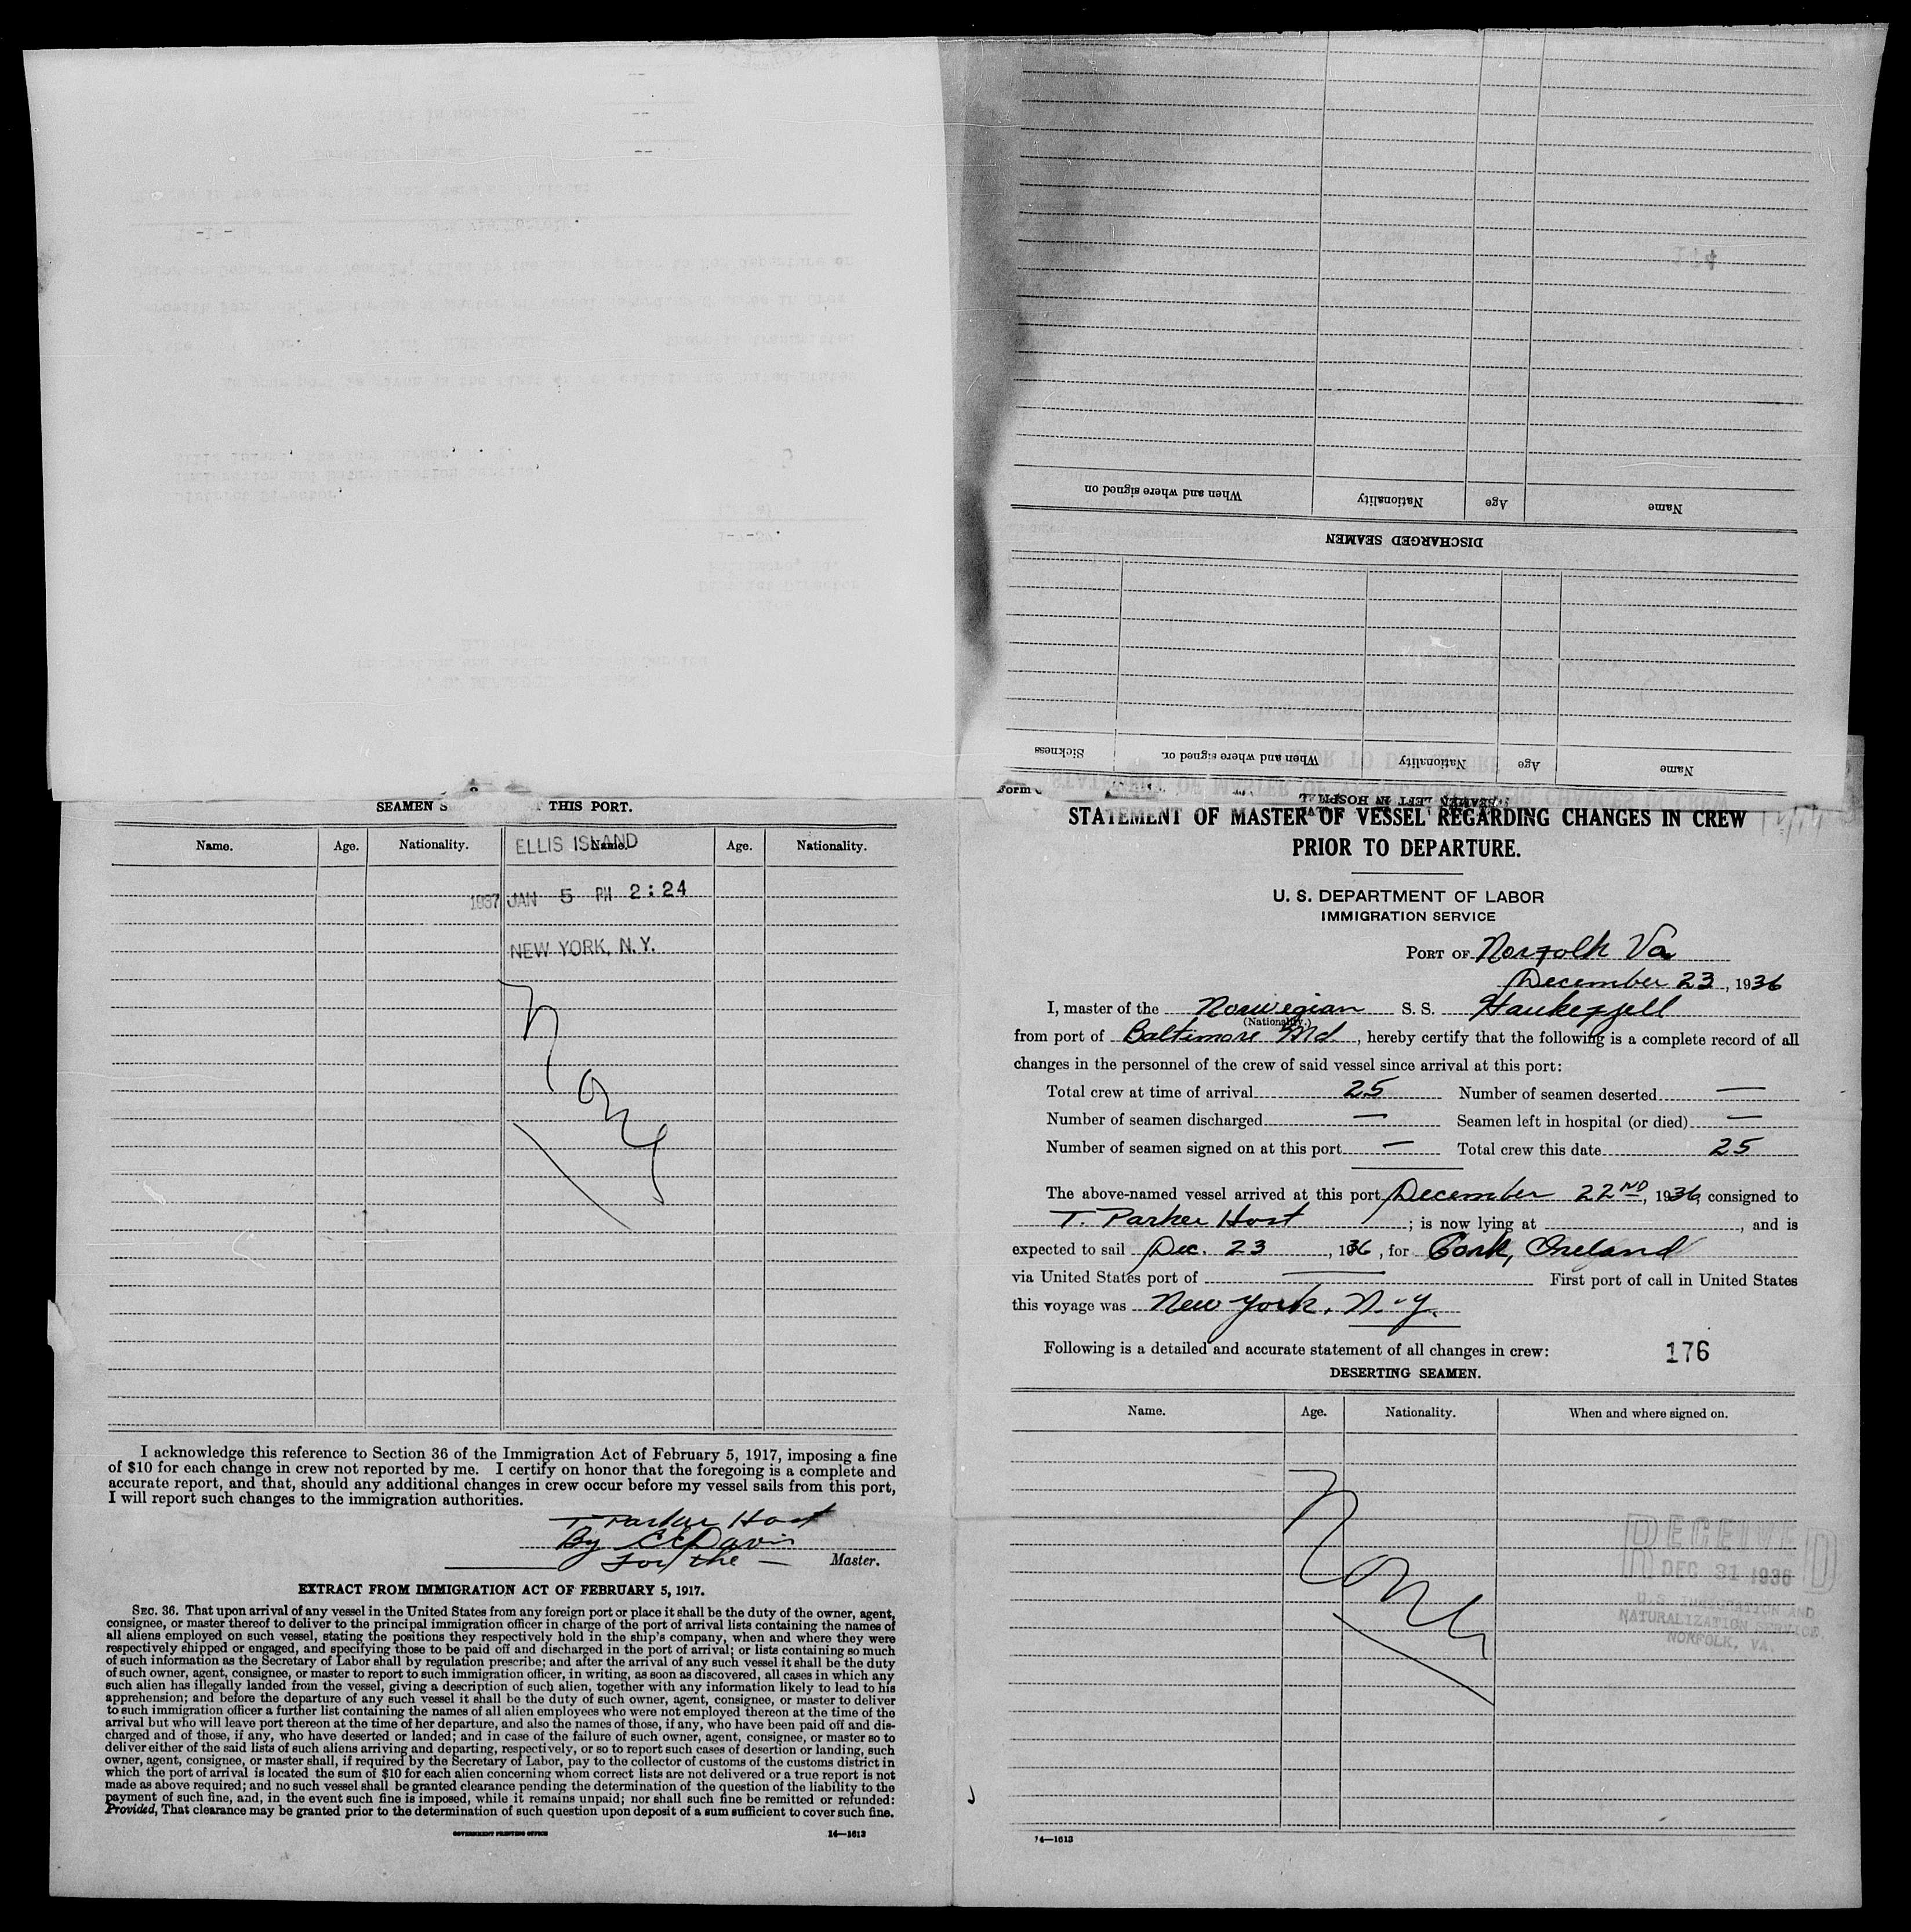 SEAMEN S THIS PORT.
Name. Age. Nationality. Name. Age. Nationality.
ELLIS ISLAND
1937 JAN 5 PM 2:24
NEW YORK, N.Y.
None
I acknowledge this reference to Section 36 of the Immigration Act of February 5, 1917, imposing a fine
of $10 for each change in crew not reported by me. I certify on honor that the foregoing is a complete and
accurate report, and that, should any additional changes in crew occur before my vessel sails from this port,
I will report such changes to the immigration authorities.
T Parker Host
By CC Davis
for the — Master.
EXTRACT FROM IMMIGRATION ACT OF FEBRUARY 5, 1917.
SEC. 36. That upon arrival of any vessel in the United States from any foreign port or place it shall be the duty of the owner, agent,
consignee, or master thereof to deliver to the principal immigration officer in charge of the port of arrival lists containing the names of
all aliens employed on such vessel, stating the positions they respectively hold in the ship's company, when and where they were
respectively shipped or engaged, and specifying those to be paid off and discharged in the port of arrival; or lists containing so much
of such information as the Secretary of Labor shall by regulation prescribe; and after the arrival of any such vessel it shall be the duty
of such owner, agent, consignee, or master to report to such immigration officer, in writing, as soon as discovered, all cases in which any
such alien has illegally landed from the vessel, giving a description of such alien, together with any information likely to lead to his
apprehension; and before the departure of any such vessel it shall be the duty of such owner, agent, consignee, or master to deliver
to such immigration officer a further list containing the names of all alien employees who were not employed thereon at the time of the
arrival but who will leave port thereon at the time of her departure, and also the names of those, if any, who have been paid off and dis-
charged and of those, if any, who have deserted or landed; and in case of the failure of such owner, agent, consignee, or master so to
deliver either of the said lists of such aliens arriving and departing, respectively, or so to report such cases of desertion or landing, such
owner, agent, consignee, or master shall, if required by the Secretary of Labor, pay to the collector of customs of the customs district in
which the port of arrival is located the sum of $10 for each alien concerning whom correct lists are not delivered or a true report is not
made as above required; and no such vessel shall be granted clearance pending the determination of the question of the liability to the
payment of such fine, and, in the event such fine is imposed, while it remains unpaid; nor shall such fine be remitted or refunded:
Provided, That clearance may be granted prior to the determination of such question upon deposit of a sum sufficient to cover such fine.
GOVERNMENT PRINTING OFFICE 14—1613
SEAMEN LEFT IN HOSPITAL
Name Age Nationality When and where signed or. Sickness
DISCHARGED SEAMEN
Name Age Nationality When and where signed on
Form
STATEMENT OF MASTER OF VESSEL REGARDING CHANGES IN CREW
PRIOR TO DEPARTURE.
U. S. DEPARTMENT OF LABOR
IMMIGRATION SERVICE
PORT OF Norfolk Va.
December 23, 1936
I, master of the Norwegian S. S. Haukefjell
(Nationality.)
from port of Baltimore Md., hereby certify that the following is a complete record of all
changes in the personnel of the crew of said vessel since arrival at this port:
Total crew at time of arrival 25 Number of seamen deserted —
Number of seamen discharged — Seamen left in hospital (or died) —
Number of seamen signed on at this port — Total crew this date 25
The above-named vessel arrived at this port December 22ND, 1936, consigned to
T. Parker Host; is now lying at , and is
expected to sail Dec. 23, 1936, for Cork, Ireland
via United States port of — First port of call in United States
this voyage was New York, N.Y.
Following is a detailed and accurate statement of all changes in crew: 176
DESERTING SEAMEN.
Name. Age. Nationality. When and where signed on.
None
RECEIVED
DEC 31 1936
U.S. IMMIGRATION AND
NATURALIZATION SERVICE
NORFOLK, VA.
14—1613